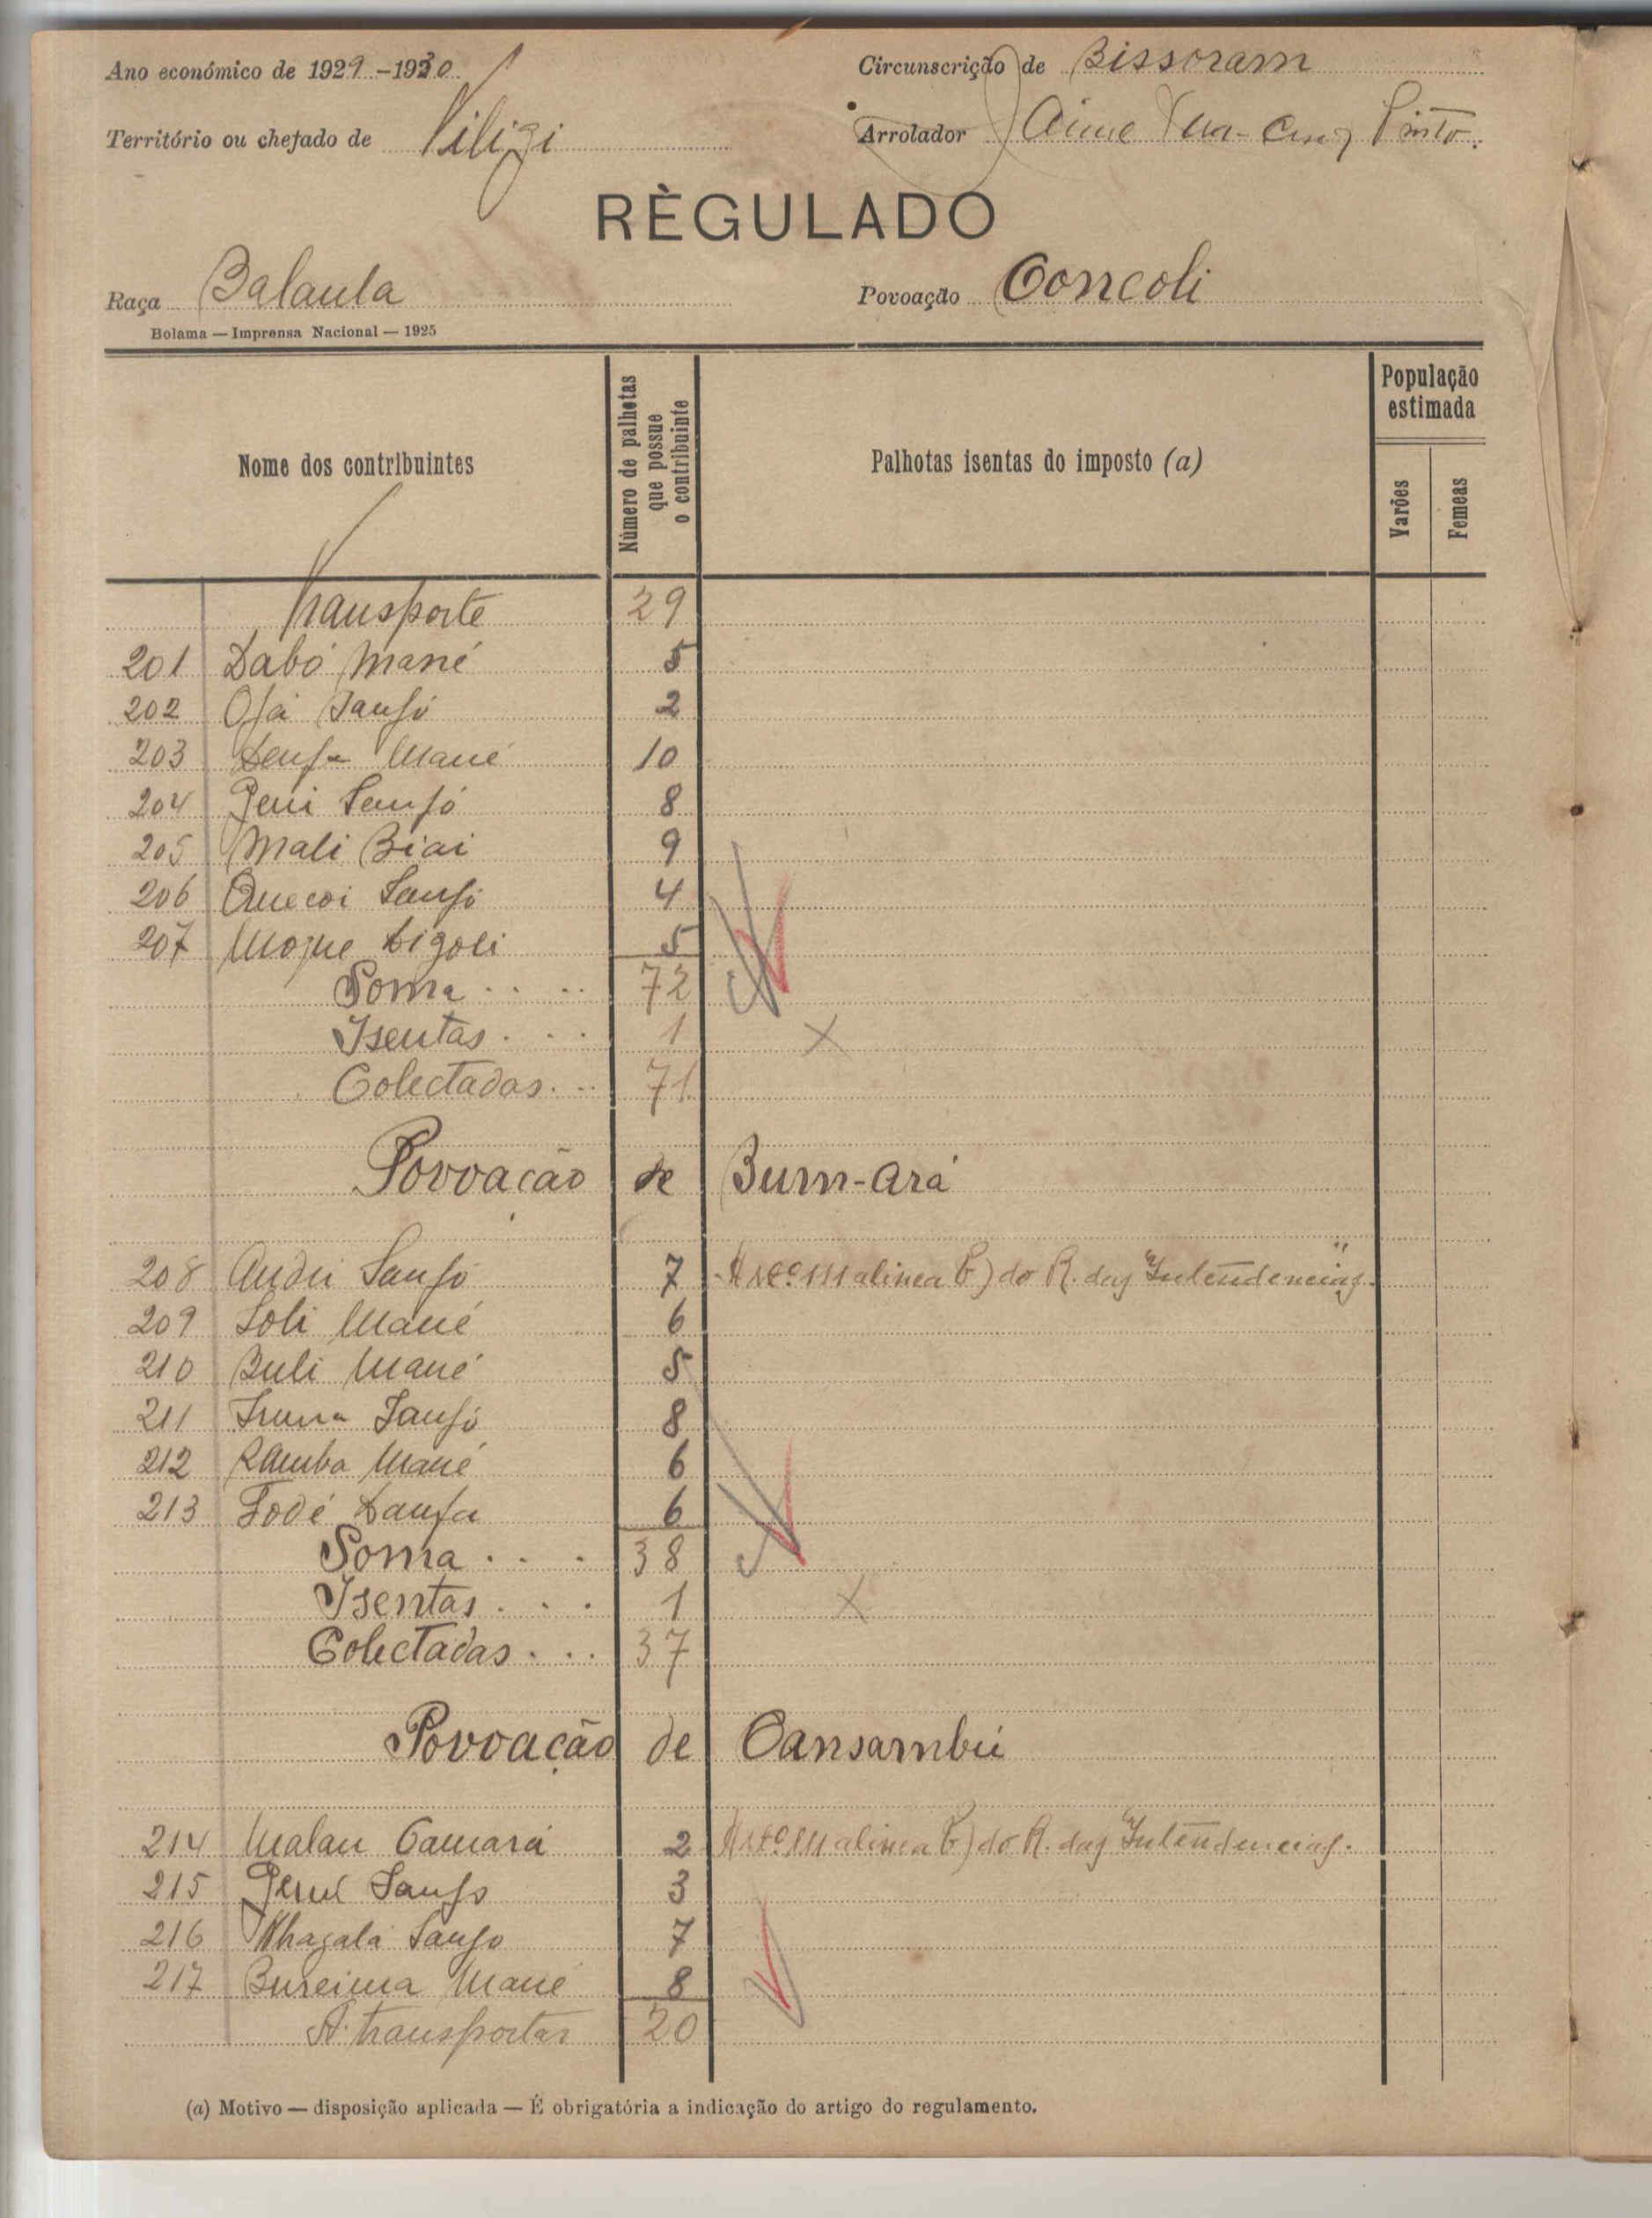 Ano económico de 1929-1930
Circunscrição de Bissoram
Território ou chefado de
Arrolador Pinto.
RÈGULADO
Raça Balanta
Povoação Concoli
Bolama — Imprensa Nacional — 1925
Nome dos contribuintes
Número de palhotas que possue o contribuinte
Palhotas isentas do imposto (a)
População estimada
Varões
Femeas
Transporte 29
201 Dabó Mané 5
202 Ofá Sanfó 2
203 Mané 10
204 Peni Sanfó 8
205 Mali Biai 9
206 Quecoi Sanfó 4
207 5
Soma.... 72
Isentas... 1 x
Colectadas... 71
Povoação de Bum-Ará
208 Sanfó 7 Artº 111 alinea b) do R. das Intendencias.
209 Soli Mané 6
210 Buli Mané 5
211 Sanfó 8
212 Mané 6
213 Fodé 6
Soma... 38
Isentas... 1 x
Colectadas... 37
Povoação de Cansambú
214 Malan Camará 2 Artº 111 alinea b) do R. das Intendencias.
215 Sanfo 3
216 Sanfo 7
217 Bureima Mané 8
A transportar 20
(a) Motivo — disposição aplicada — É obrigatória a indicação do artigo do regulamento.